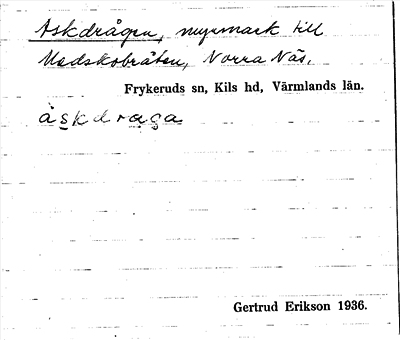 Askdrågen, myrmark till
Medskobråten, Norra Näs,
Frykeruds sn, Kils hd, Värmlands län.
åskdraga
Gertrud Erikson 1936.